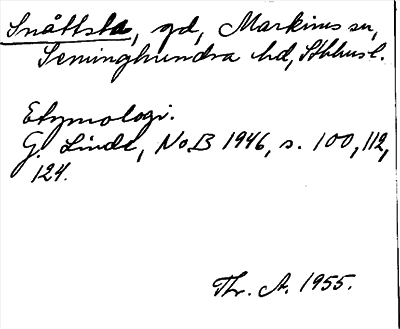 Snåttsta, gd, Markims sn,
Seminghundra hd, Sthlmsl.
Etymologi.
G. Linde, NoB 1946, s. 100, 112,
124.
Thr. A. 1955.